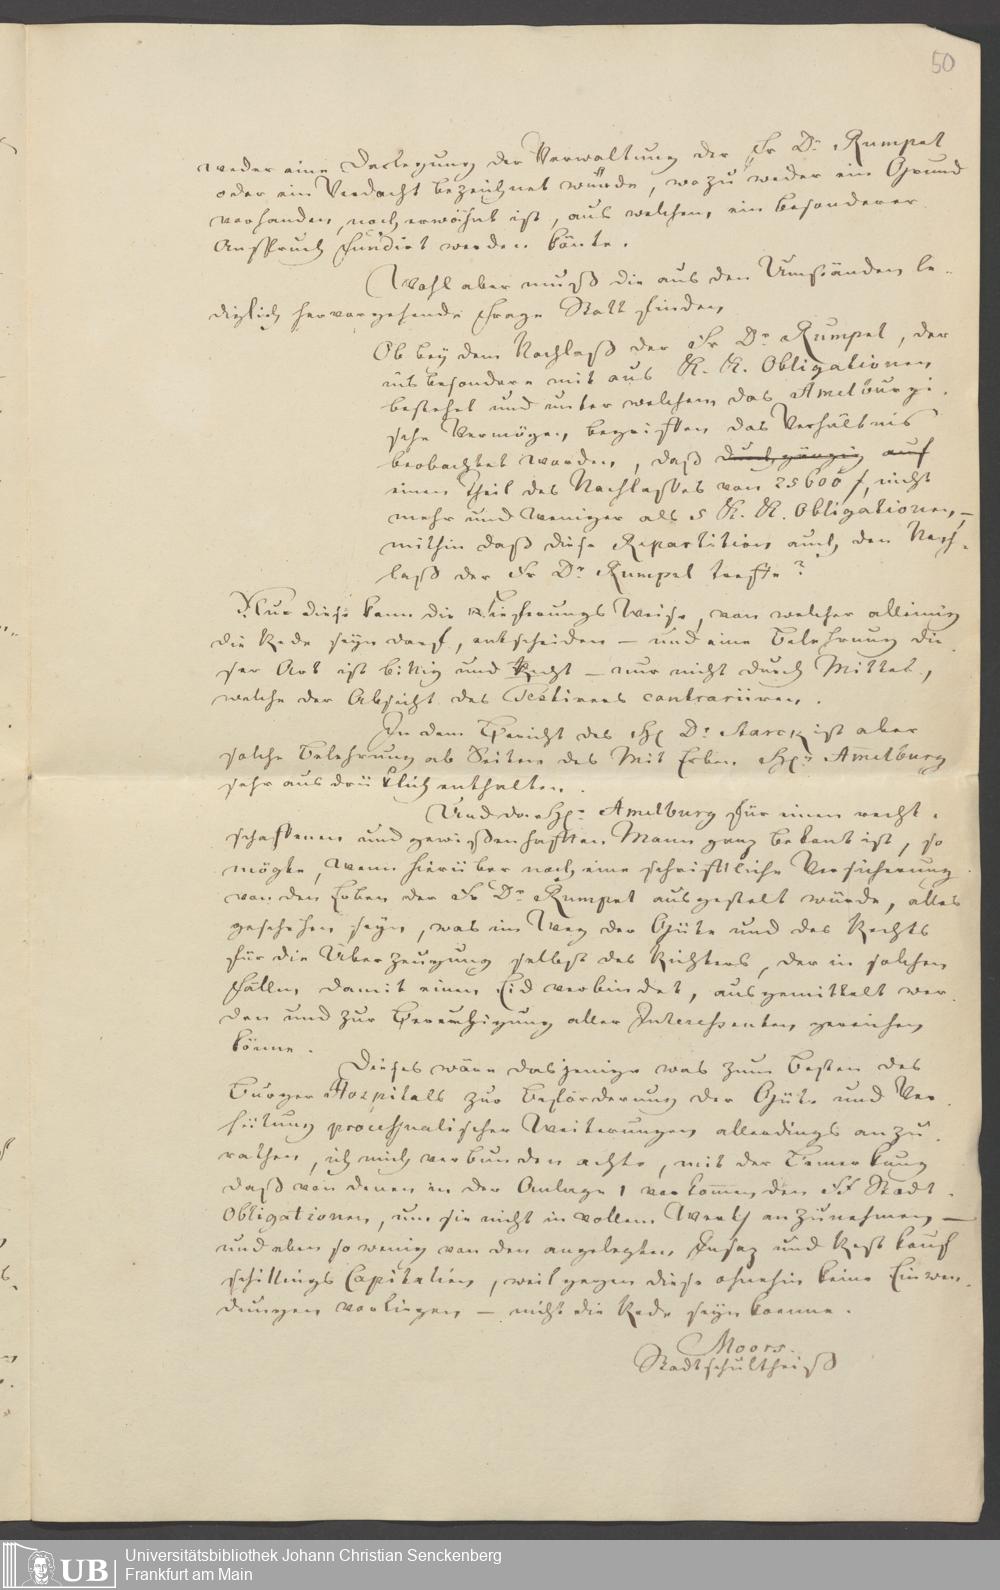 50
weder eine Darlegung der Verwaltung der Fr Dr Rumpel
oder ein Verdacht bezeichnet würde, wozu weder ein Grund
vorhanden, noch erwähnt ist, aus welchem, ein besonderer
Anspruch fundirt werden könte.
Wohl aber muß die aus den Umständen le-
diglich hervorgehende Frage Statt finden,
Ob bey dem Nachlaß der Fr Dr Rumpel, der
insbesondere mit aus K. K. Obligationen,
bestehet und unter welchem das Amelburgi-
sche Vermögen, begriffen das Verhältnis
beobachtet worden, daß durchgängig auf
einen Theil des Nachlasses von 25600 f, nicht
mehr und weniger als 5 K. K. Obligationen, –
mithin daß diese Repartition auch den Nach-
laß der Fr Dr Rumpel treffe?
Nur diese kann die Lieferungs Weise, von welcher alleinig
die Rede seyn darf, entscheiden – und eine Belehrung die-
ser Art ist billig und Recht – nur nicht durch Mittel,
welche der Absicht des Testirers contrariiren.
In dem Bericht des H. Dr Starck ist aber
solche Belehrung ab Seiten des Mit Erben Hn Amelburg
sehr ausdrüklich enthalten.
Und da Hr Amelburg für einen recht-
schaffenen und gewißenhaften Mann ganz bekant ist, so
mögte, wenn hierüber noch eine schriftliche Versicherung
von den Erben der Fr Dr Rumpel ausgestelt würde, alles
geschehen seyn, was im Weg der Güte und des Rechts
für die Überzeugung selbst des Richters, der in solchen
Fällen, damit einen Eid verbindet, ausgemittelt wer-
den und zur Beruhigung aller Interessenten, gereichen
könne.
Dieses wäre dasjenige was zum Besten des
Burger Hospitals zur Beförderung der Güte und Ver-
hütung processualischer Weiterungen allerdings anzu-
rathen, ich mich verbunden achte, mit der Bemerkung
daß von denen in der Anlage 1 vorkommenden Stadt-
Obligationen, um sie nicht in vollem Werth anzunehmen –
und eben so wenig von den angelegten Insaz und Rest kauf
schillings Capitalien, weil gegen diese ohnehin keine Einwen-
dungen vorliegen – nicht die Rede seyn koenne.
Moors.
Stadtschultheiß
UB
Universitätsbibliothek Johann Christian Senckenberg
Frankfurt am Main